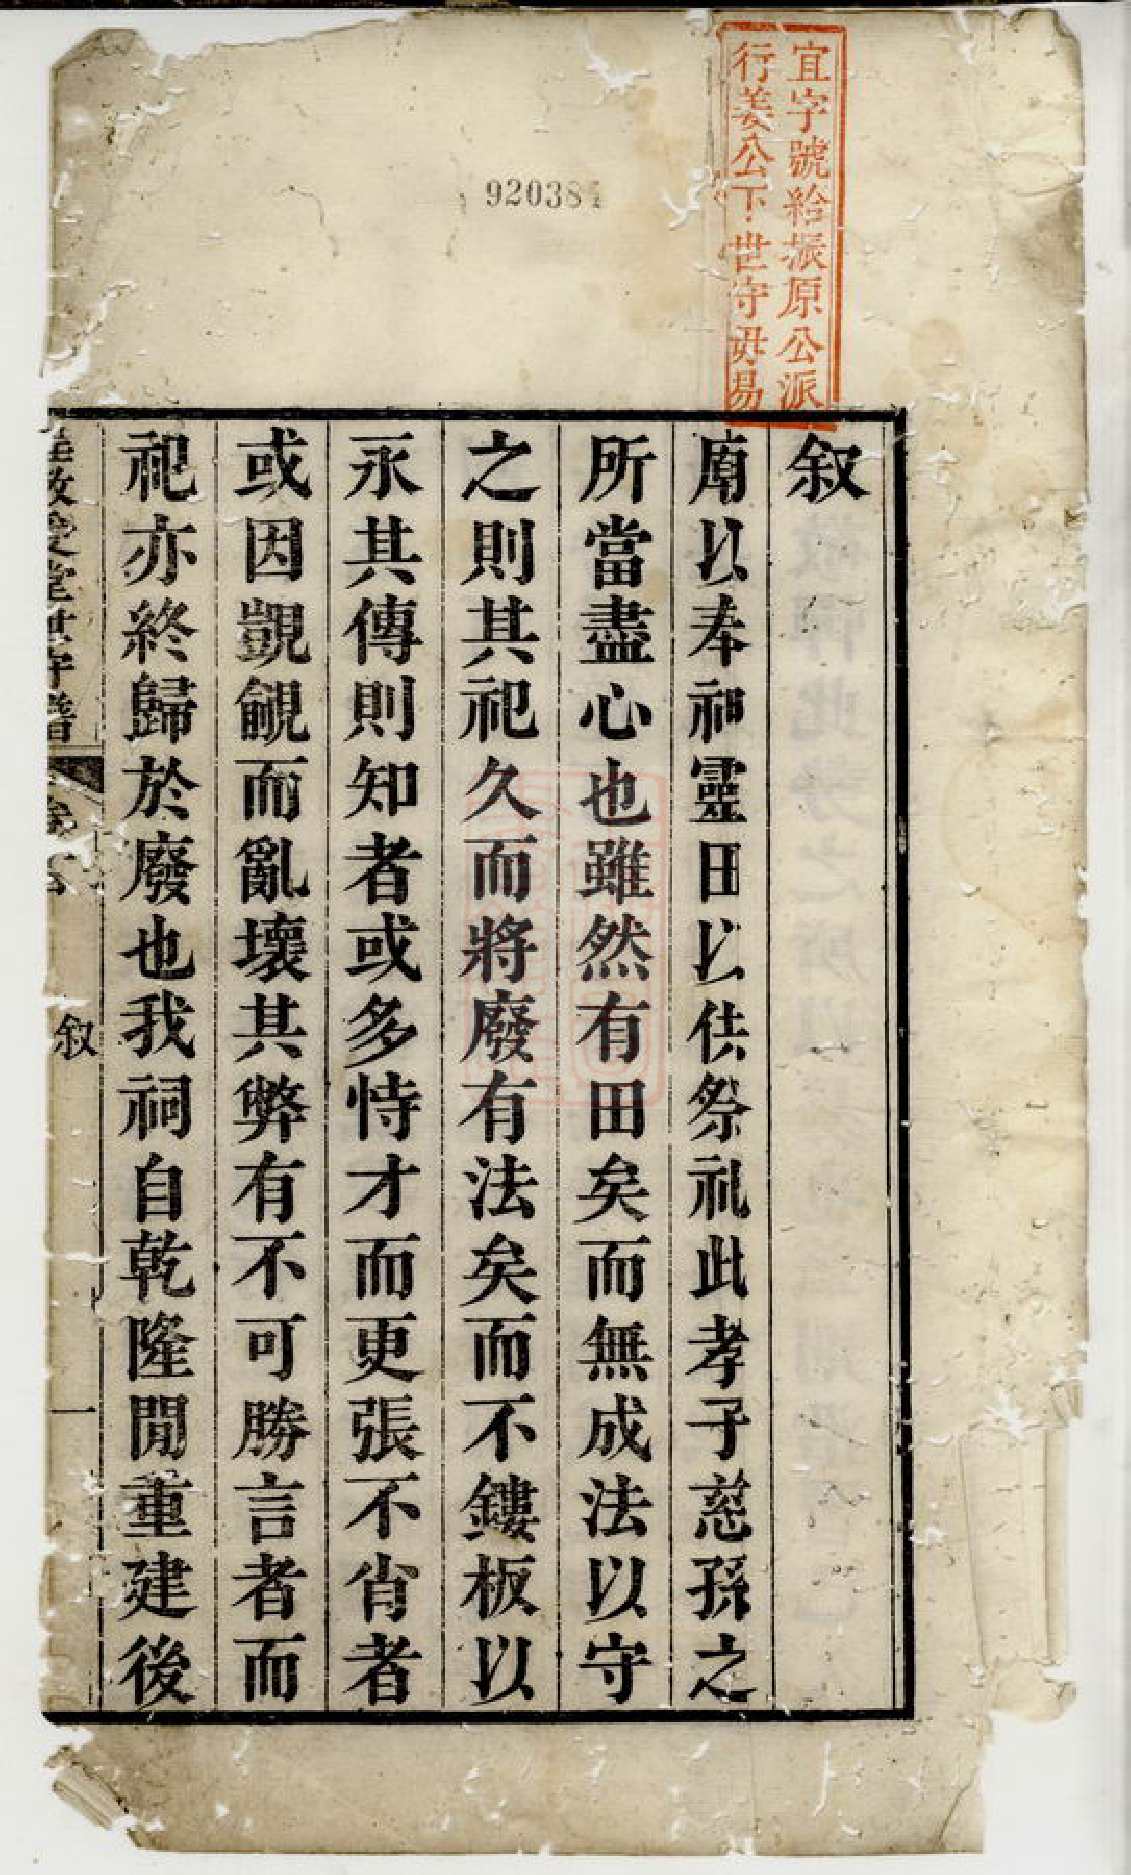 宜字號給振原公派
行姜公下世守毋易
920384
叙
庿以奉神靈田以供祭礼此孝子慈孫之
所當盡心也雖然有田矣而無成法以守
之則其祀久而將廢有法矣而不鏤板以
永其傳則知者或多恃才而更張不肖者
或因覬覦而亂壞其弊有不可勝言者而
祀亦終歸於廢也我祠自乾隆閒重建後
敦愛堂世守譜
叙
一